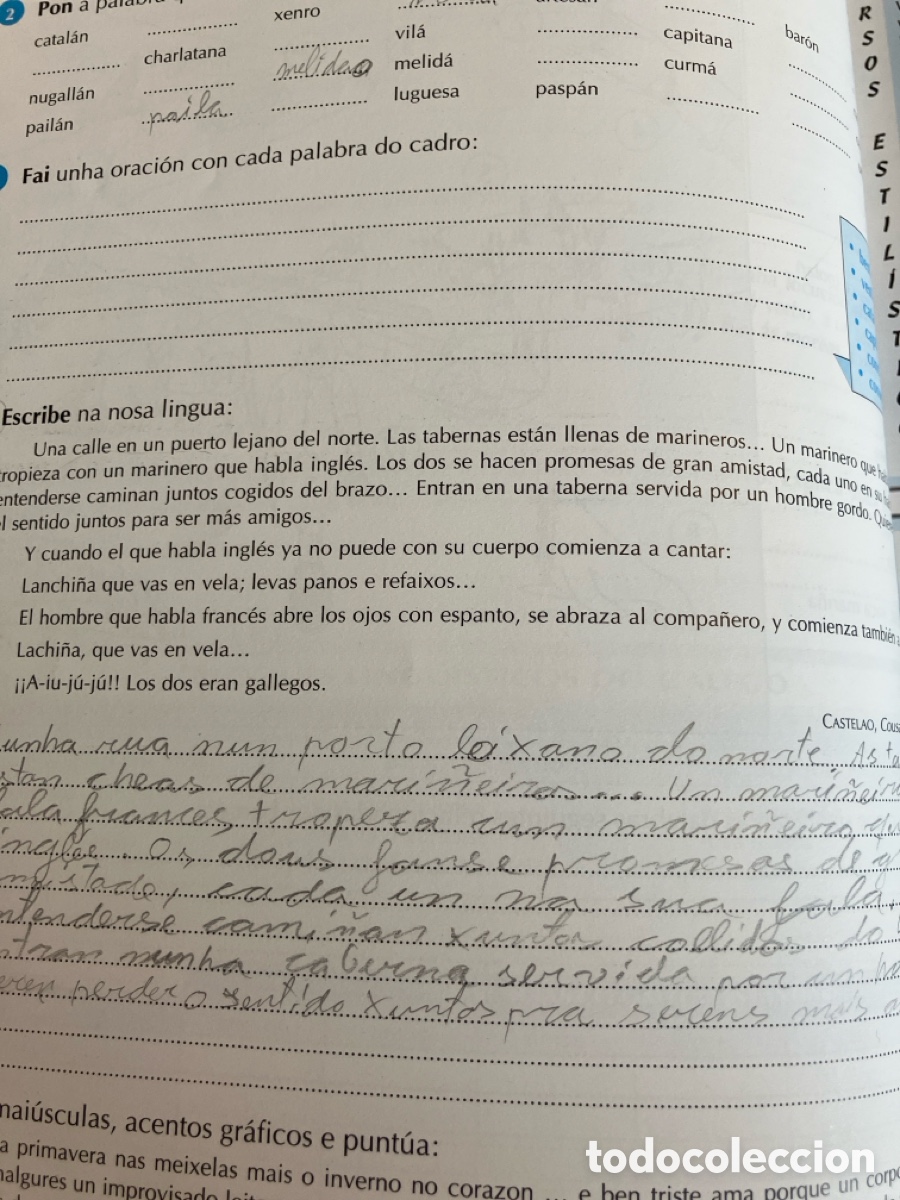 2 Pon a
catalán xenro vilá capitana barón
charlatana
nugallán melideo melidá curmá
pailán paila luguesa paspán
Fai unha oración con cada palabra do cadro:
Escribe na nosa lingua:
Una calle en un puerto lejano del norte. Las tabernas están llenas de marineros... Un marinero que
tropieza con un marinero que habla inglés. Los dos se hacen promesas de gran amistad, cada uno en su
entenderse caminan juntos cogidos del brazo... Entran en una taberna servida por un hombre gordo.
el sentido juntos para ser más amigos...
Y cuando el que habla inglés ya no puede con su cuerpo comienza a cantar:
Lanchiña que vas en vela; levas panos e refaixos...
El hombre que habla francés abre los ojos con espanto, se abraza al compañero, y comienza también a
Lachiña, que vas en vela...
¡¡A-iu-jú-jú!! Los dos eran gallegos.
CASTELAO,
unha rua nun porto leixano do norte. As
cheas de mariñeiros... Un
frances, tropeza cun mariñeiro
Os dous fanse promesas de
cada un na sua fala.
camiñan xuntos collidos do
nunha taberna servida por un
perder o sentido xuntos pra serens mais
maiúsculas, acentos gráficos e puntúa:
a primavera nas meixelas mais o inverno no corazon ... e ben triste ama porque un corpo
nalgures un improvisado
todocoleccion
R
S
O
S
E
S
T
I
L
Í
S
T